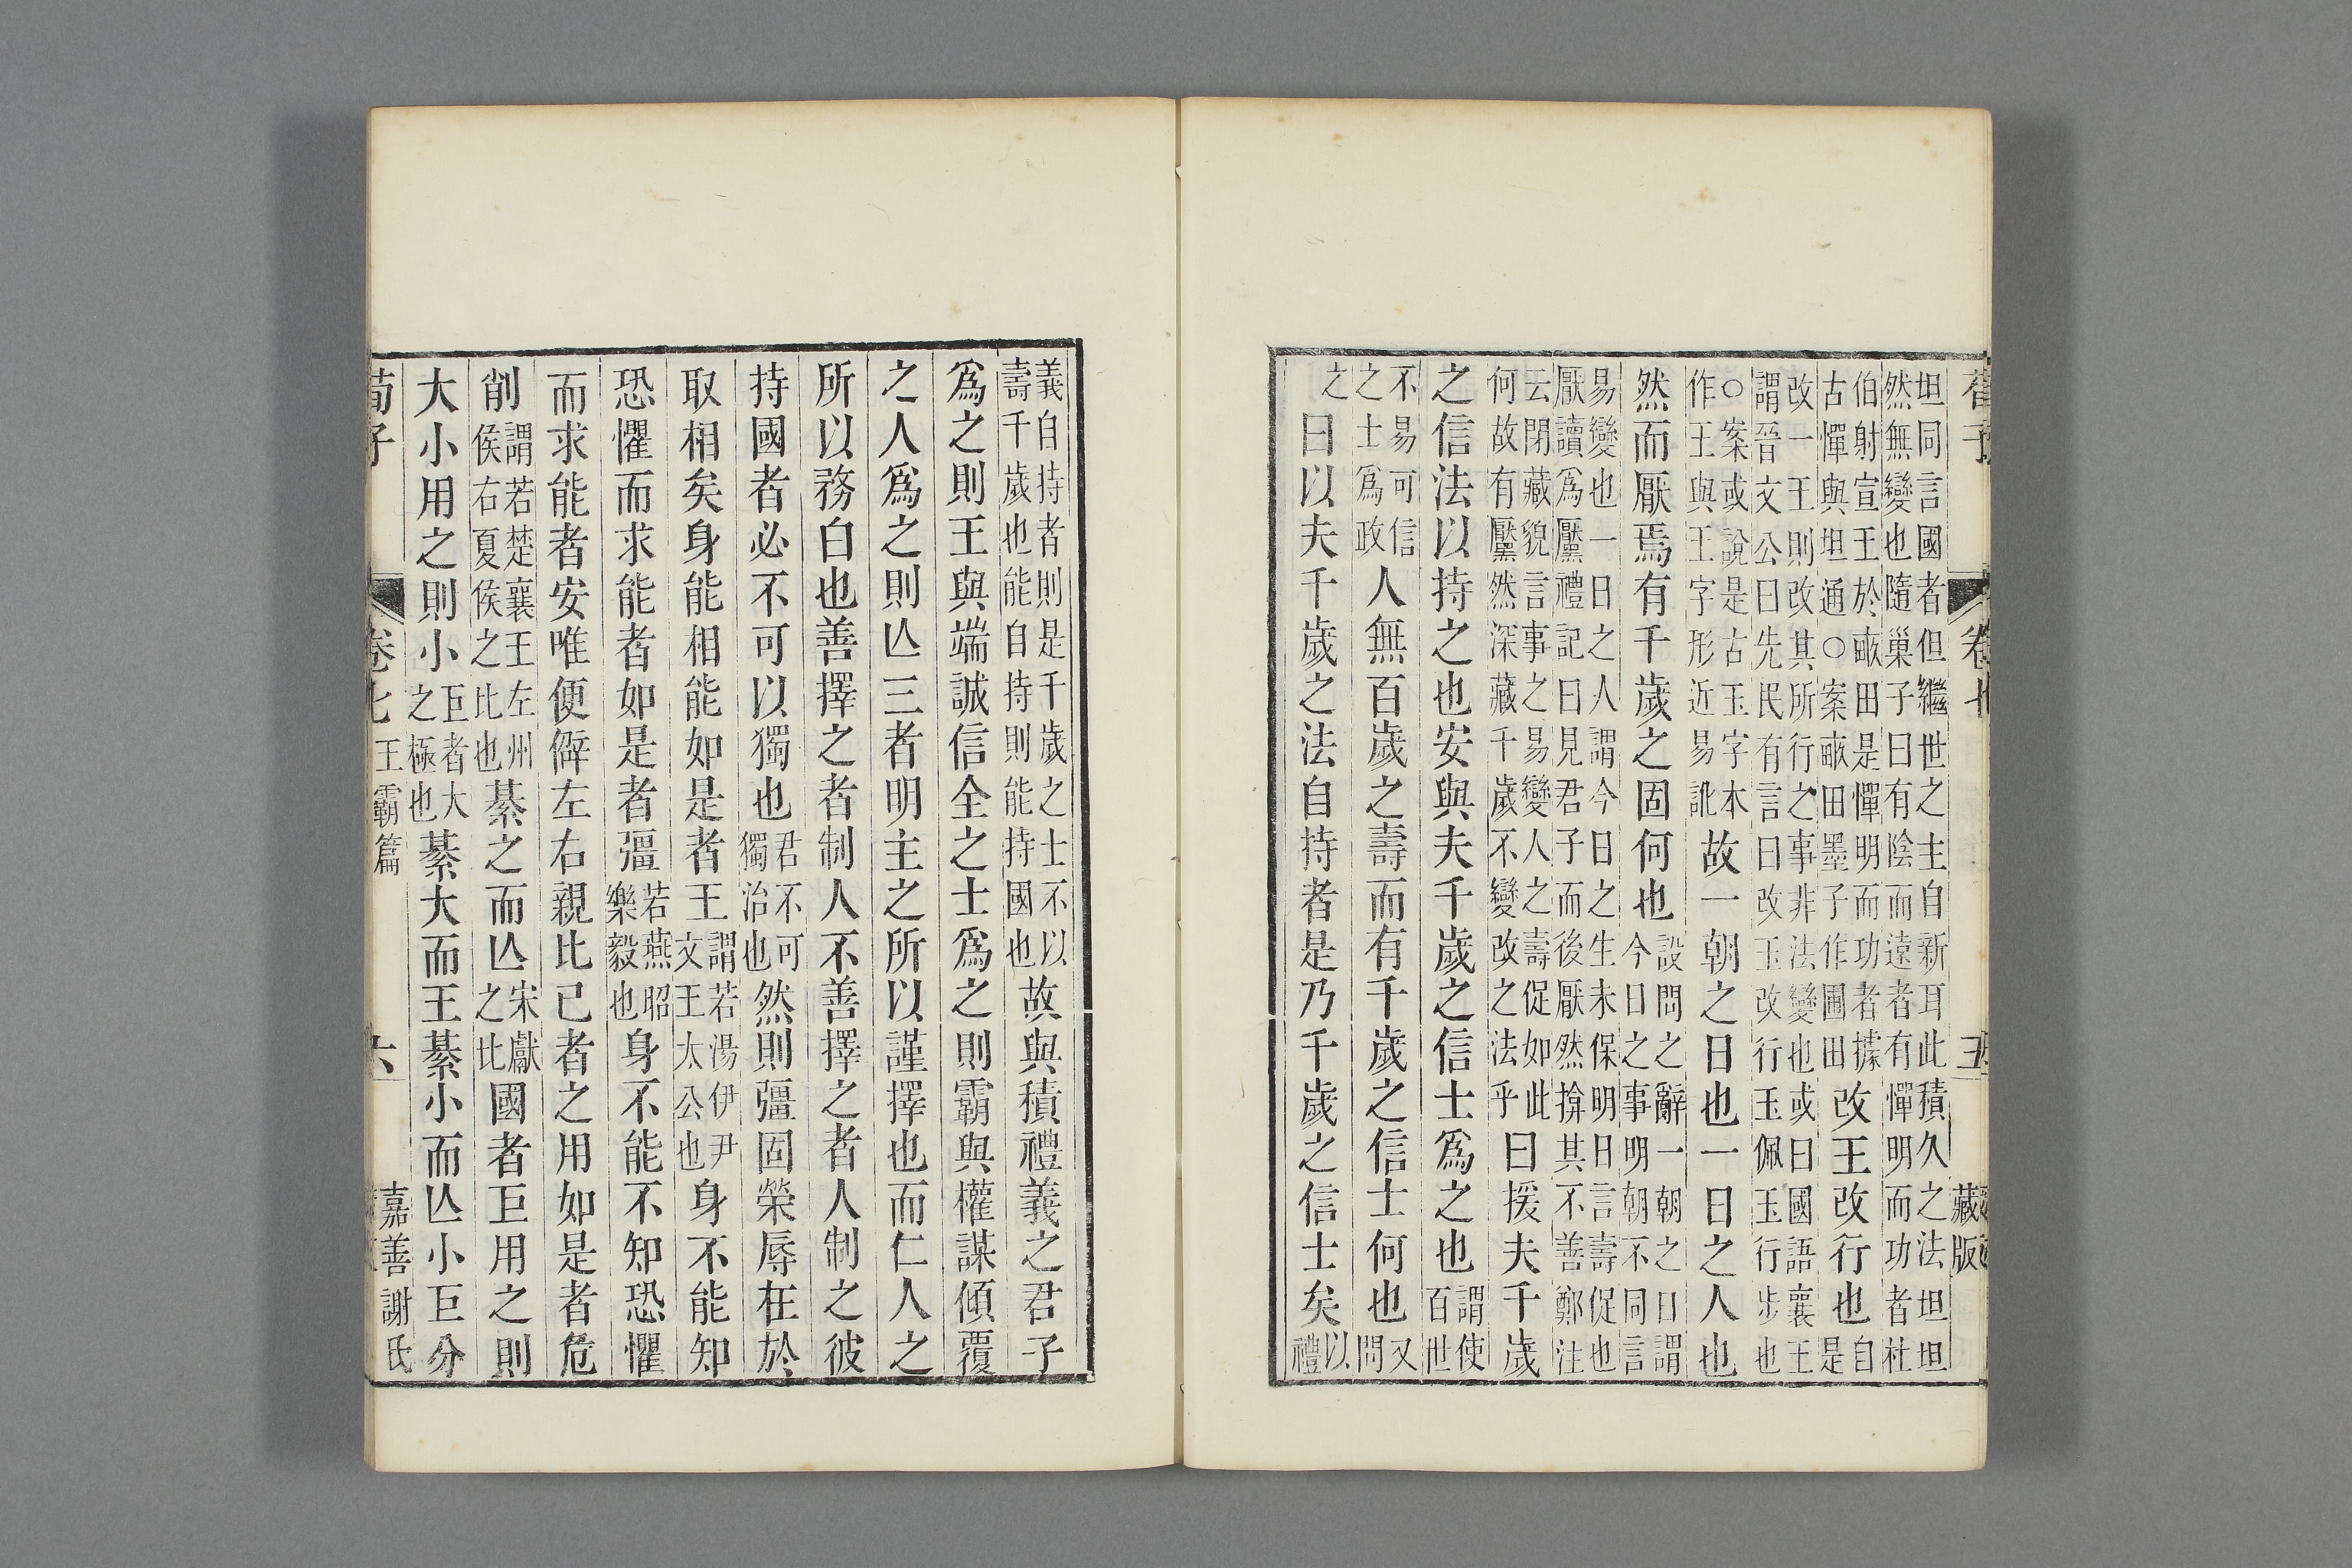 荀子 卷七 五 藏版
坦同言國者但繼世之主自新耳此積久之法坦坦
然無變也隨巢子曰有陰而遠者有憚明而功者杜
伯射宣王於畝田是憚明而功者據
古憚與坦通○案畝田墨子作圃田
改王改行也
自
是
改一王則改其所行之事非法變也或曰國語襄王
謂晉文公曰先民有言曰改玉改行玉佩玉行步也
○案或說是古玉字本
作王與王字形近易訛
故一朝之日也一日之人也
然而厭焉有千歲之固何也
設問之辭一朝之日謂
今日之事明朝不同言
易變也一日之人謂今日之生未保明日言壽促也
厭讀爲黶禮記曰見君子而後厭然揜其不善鄭注
云閉藏貌言事之易變人之壽促如此
何故有黶然深藏千歲不變改之法乎
曰援夫千歲
之信法以持之也安與夫千歲之信士爲之也
謂使
百世
不易可信
之士爲政
人無百歲之壽而有千歲之信士何也
又
問
之
曰以夫千歲之法自持者是乃千歲之信士矣
以
禮
義自持者則是千歲之士不以
壽千歲也能自持則能持國也
故與積禮義之君子
爲之則王與端誠信全之士爲之則霸與權謀傾覆
之人爲之則亾三者明主之所以謹擇也而仁人之
所以務白也善擇之者制人不善擇之者人制之彼
持國者必不可以獨也
君不可
獨治也
然則彊固榮辱在於
取相矣身能相能如是者王
謂若湯伊尹
文王太公也
身不能知
恐懼而求能者如是者彊
若燕昭
樂毅也
身不能不知恐懼
而求能者安唯便僻左右親比己者之用如是者危
削
謂若楚襄王左州
侯右夏侯之比也
綦之而亾
宋獻
之比
國者巨用之則
大小用之則小
巨者大
之極也
綦大而王綦小而亾小巨分
荀子 卷七 王霸篇 六 嘉善謝氏